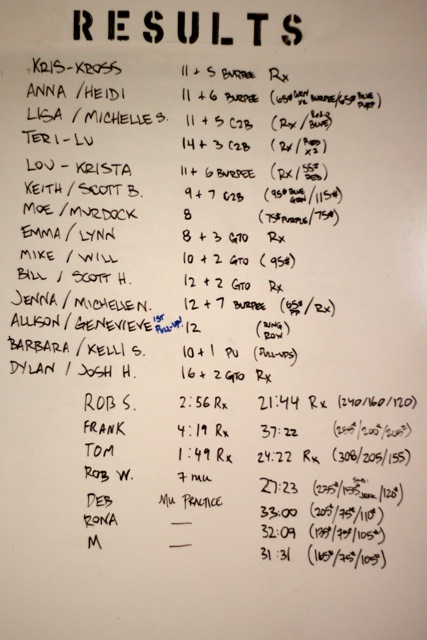 RESULTS
KRIS-KROSS 11 + 5 BURPEE Rx
ANNA / HEIDI 11 + 6 BURPEE (65# GRN X2 BURPEE/65# BLUE PURP)
LISA / MICHELLE S. 11 + 5 C2B (Rx / BLUE)
TERI-LU 14 + 3 C2B (Rx / RED X2)
LOU - KRISTA 11 + 6 BURPEE (Rx / 55# RED)
KEITH / SCOTT B. 9 + 7 C2B (95# BLUE GRN / 115#)
MOE / MURDOCK 8 (75# PURPLE / 75#)
EMMA / LYNN 8 + 3 GTO Rx
MIKE / WILL 10 + 2 GTO (95#)
BILL / SCOTT H. 12 + 2 GTO Rx
JENNA / MICHELLE N. 12 + 7 BURPEE (65# PP / Rx)
ALLISON / GENEVIEVE 1ST PULL-UP! 12 (RING ROW)
BARBARA / KELLI S. 10 + 1 PU (PULL-UPS)
DYLAN / JOSH H. 16 + 2 GTO Rx
ROB S. 2:56 Rx 21:44 Rx (240/160/120)
FRANK 4:19 Rx 37:22
TOM 1:49 Rx 24:22 Rx (308/205/155)
ROB W. 7 MU 27:23 (275#/155#/120#)
DEB MU PRACTICE 33:00 (205#/75#/110#)
RONA — 32:09 (135#/75#/105#)
M — 31:31 (165#/75#/105#)